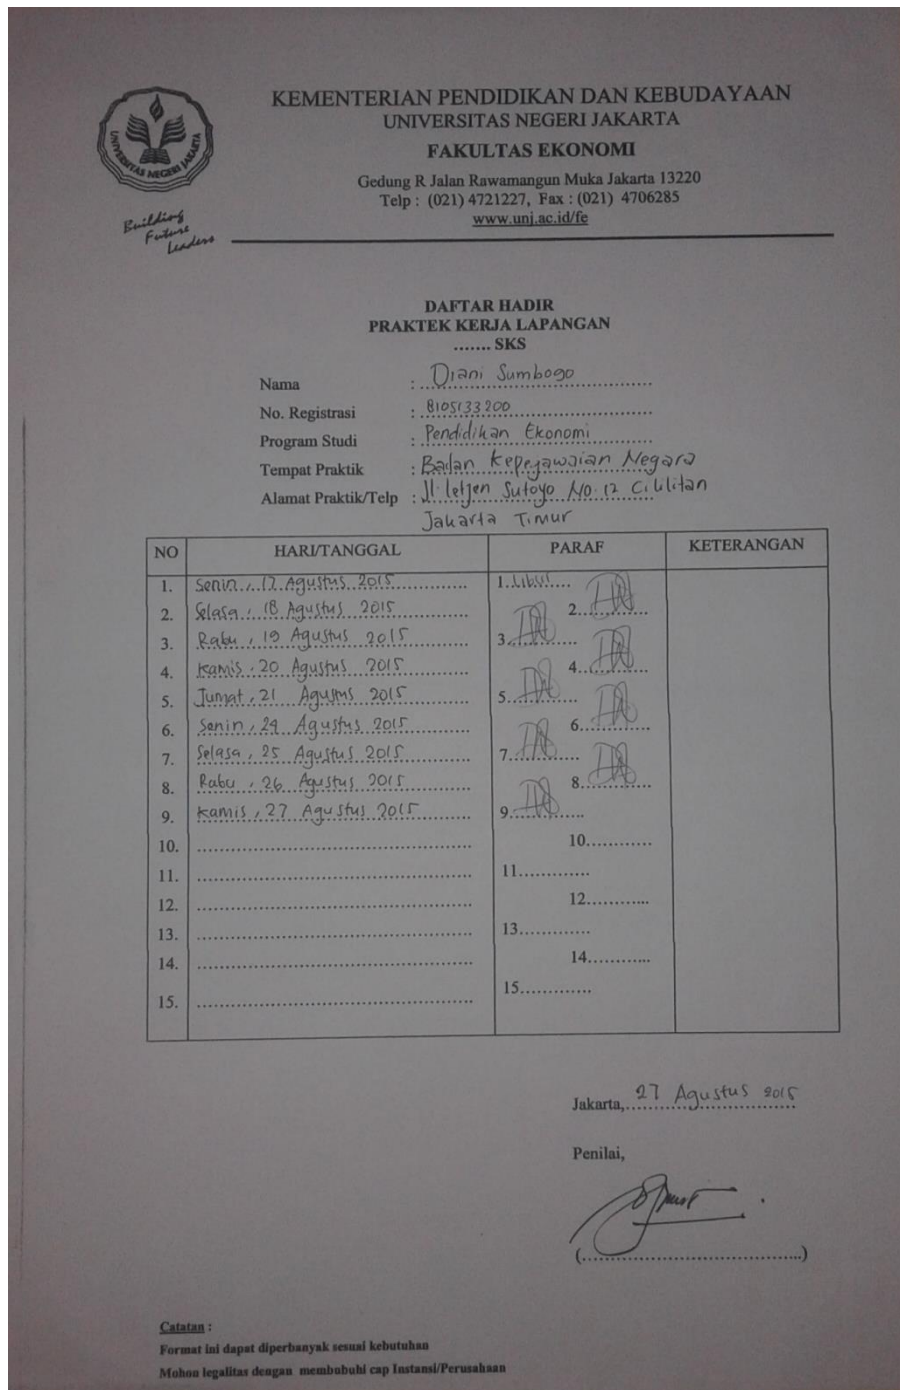 KEMENTERIAN PENDIDIKAN DAN KEBUDAYAAN
UNIVERSITAS NEGERI JAKARTA
FAKULTAS EKONOMI
Gedung R Jalan Rawamangun Muka Jakarta 13220
Telp : (021) 4721227, Fax : (021) 4706285
www.unj.ac.id/fe
UNIVERSITAS NEGERI JAKARTA
Building
Future
Leaders
DAFTAR HADIR
PRAKTEK KERJA LAPANGAN
....... SKS
Nama : Diani Sumbogo
No. Registrasi : 8105133200
Program Studi : Pendidikan Ekonomi
Tempat Praktik : Badan Kepegawaian Negara
Alamat Praktik/Telp : Jl. Letjen Sutoyo No. 12 Cililitan
Jakarta Timur
NO HARI/TANGGAL PARAF KETERANGAN
1. Senin, 17 Agustus 2015 1. Libur
2. Selasa, 18 Agustus 2015 2.
3. Rabu, 19 Agustus 2015 3.
4. Kamis, 20 Agustus 2015 4.
5. Jumat, 21 Agustus 2015 5.
6. Senin, 24 Agustus 2015 6.
7. Selasa, 25 Agustus 2015 7.
8. Rabu, 26 Agustus 2015 8.
9. Kamis, 27 Agustus 2015 9.
10. 10.
11. 11.
12. 12.
13. 13.
14. 14.
15. 15.
Jakarta, 27 Agustus 2015
Penilai,
Catatan :
Format ini dapat diperbanyak sesuai kebutuhan
Mohon legalitas dengan membubuhi cap Instansi/Perusahaan